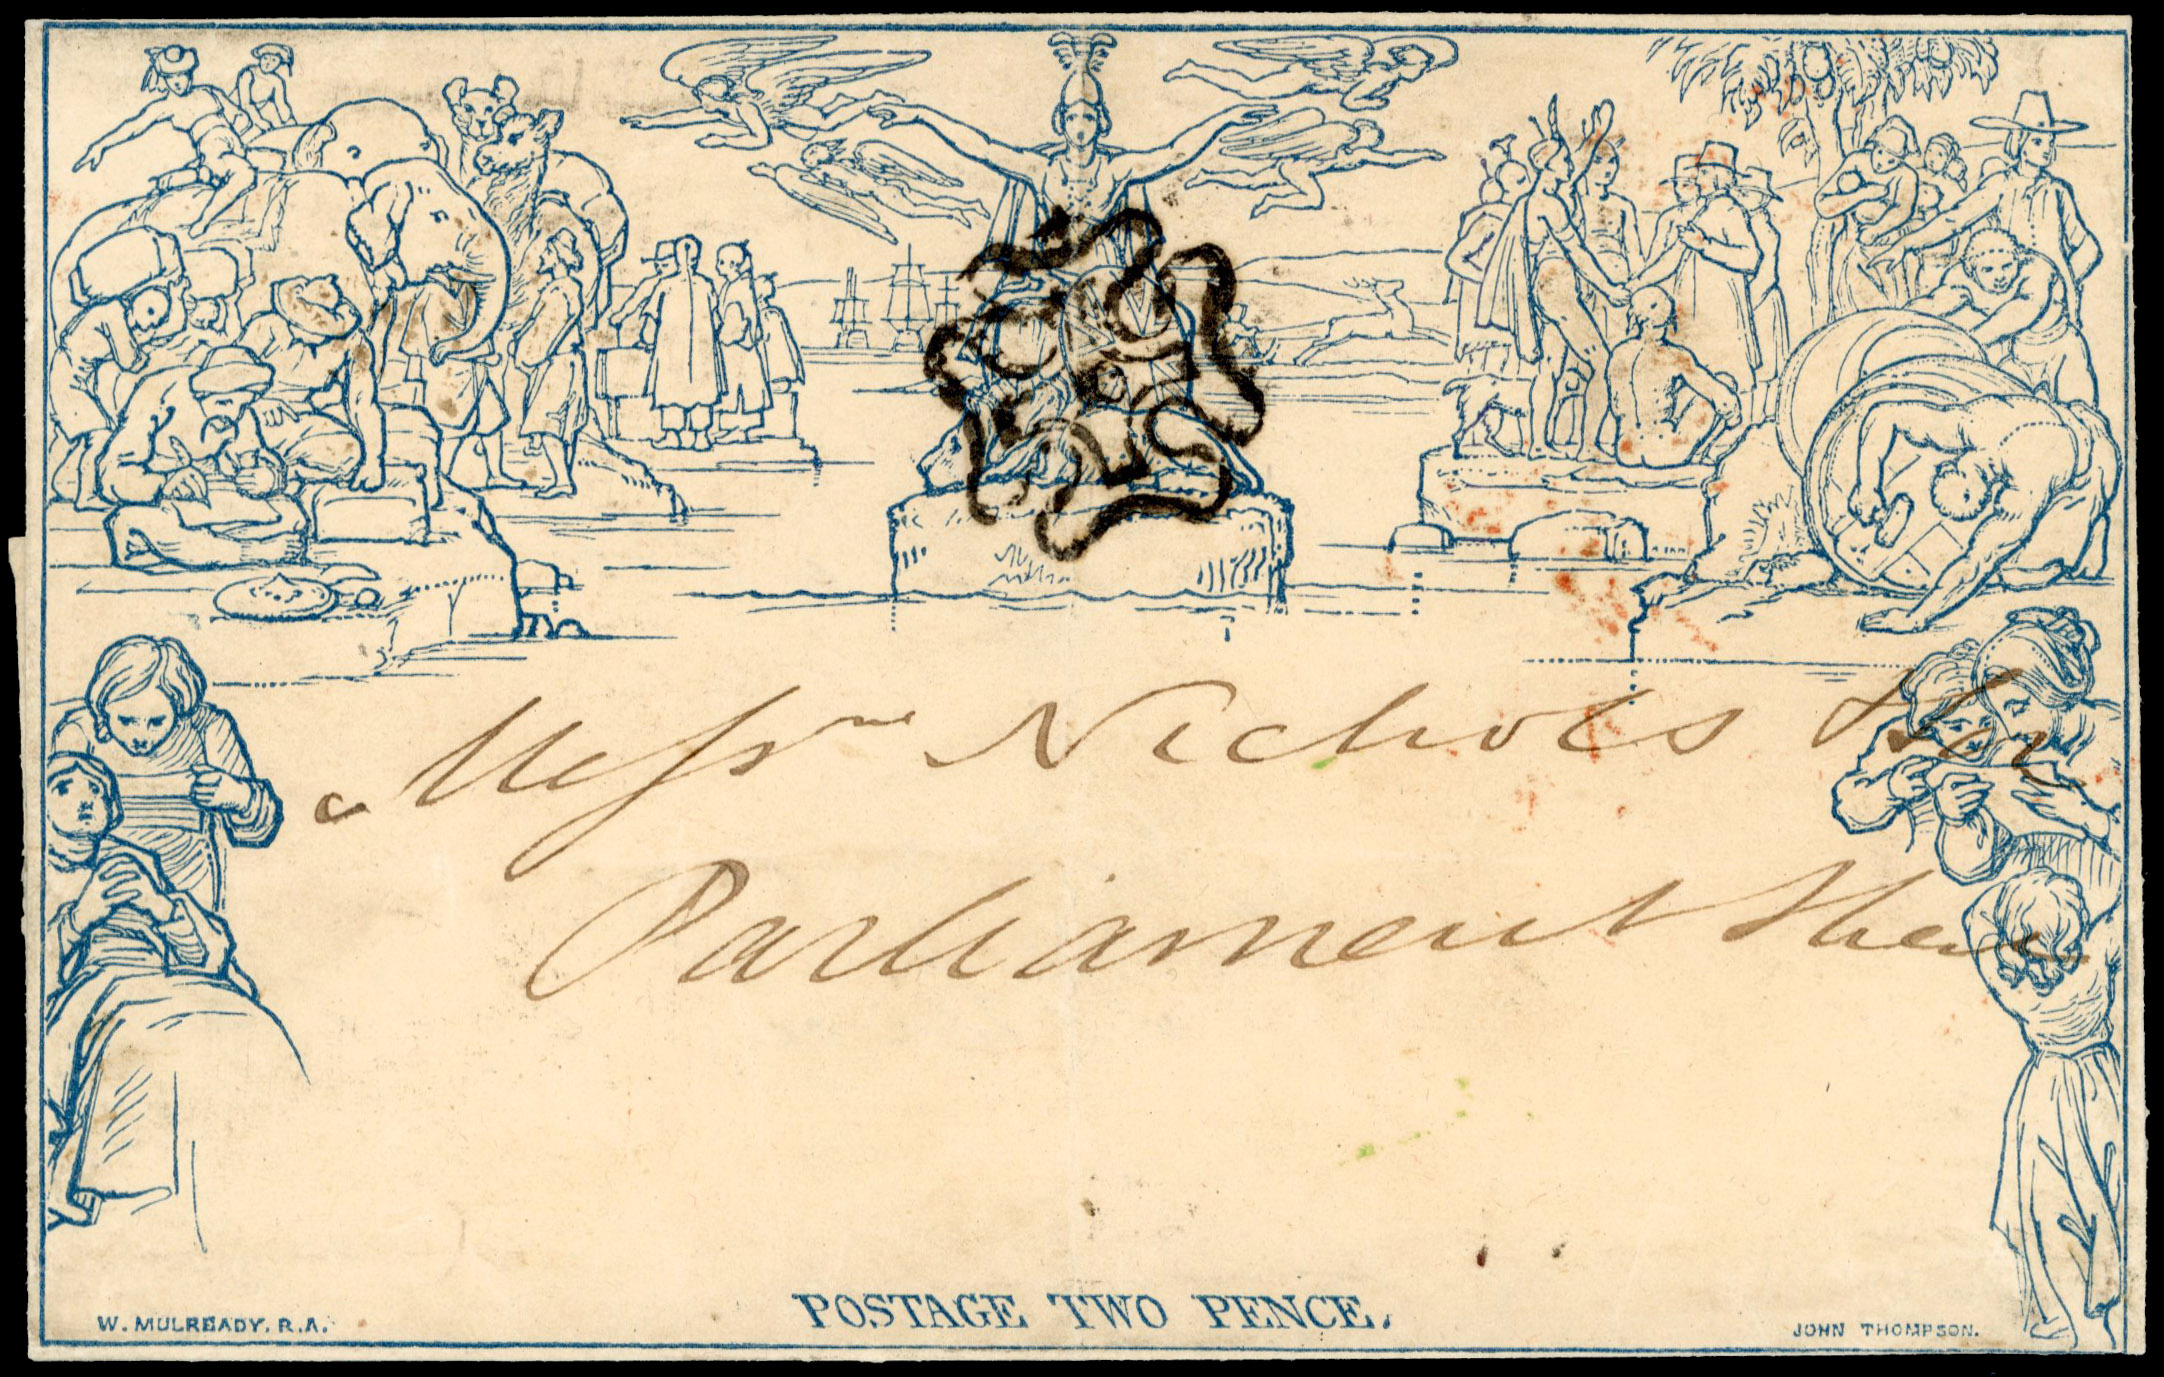 Messrs Nichols &
Parliament Street
POSTAGE TWO PENCE.
W. MULREADY, R.A.
JOHN THOMPSON.